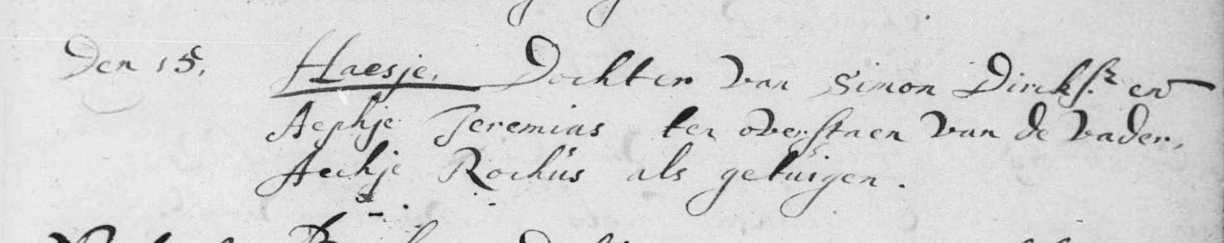 Den 15. Haesje, Dochter van Simon Dircks.z en
Aephje Jeremias ten overstaen van de vader,
Aechje Rochùs als getùigen.